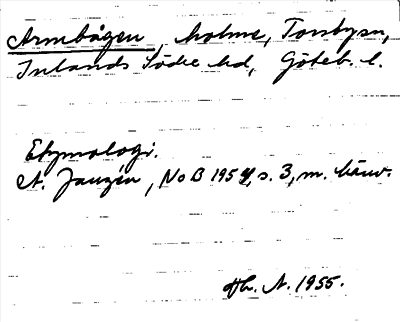 Armbågen, holme, Torsbysn,
Inlands Södre hd, Göteb. l.
Etymologi.
A. Janzén, NoB 1954, s. 3, m. hänv.
Hr. A. 1955.